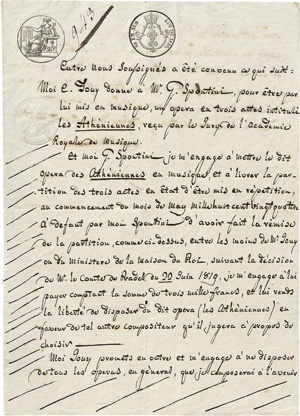 Entre nous Soussignés a été convenu ce qui suit:
Moi E. Jouy donne à Mr. G. Spontini, pour être par
lui mis en musique, un opera en trois actes intitulé
les Athéniennes, reçu par le Jury de l'Académie
Royale de Musique.
Et moi G. Spontini je m'engage à mettre le dit
opera des Athéniennes en musique et à livrer la par-
tition des trois actes en état d'être mis en répétition,
au commencement du mois de May mil huit cent vingt quatre
à défaut par moi Spontini d'avoir fait la remise
de la partition, comme ci-dessus, entre les mains de Mr. Jouy
ou du ministère de la maison du Roi, suivant la décision
de Mr. le Comte de Pradel du 22 Juin 1819, je m'engage à lui
payer comptant la somme de trois mille francs, et lui rends
la liberté de disposer du dit opera (les Athéniennes) en
faveur de tel autre Compositeur qu'il jugera à propos de
choisir.
Moi Jouy promets en outre et m'engage à ne disposer
de tous les operas, en général, que je composerai à l'avenir